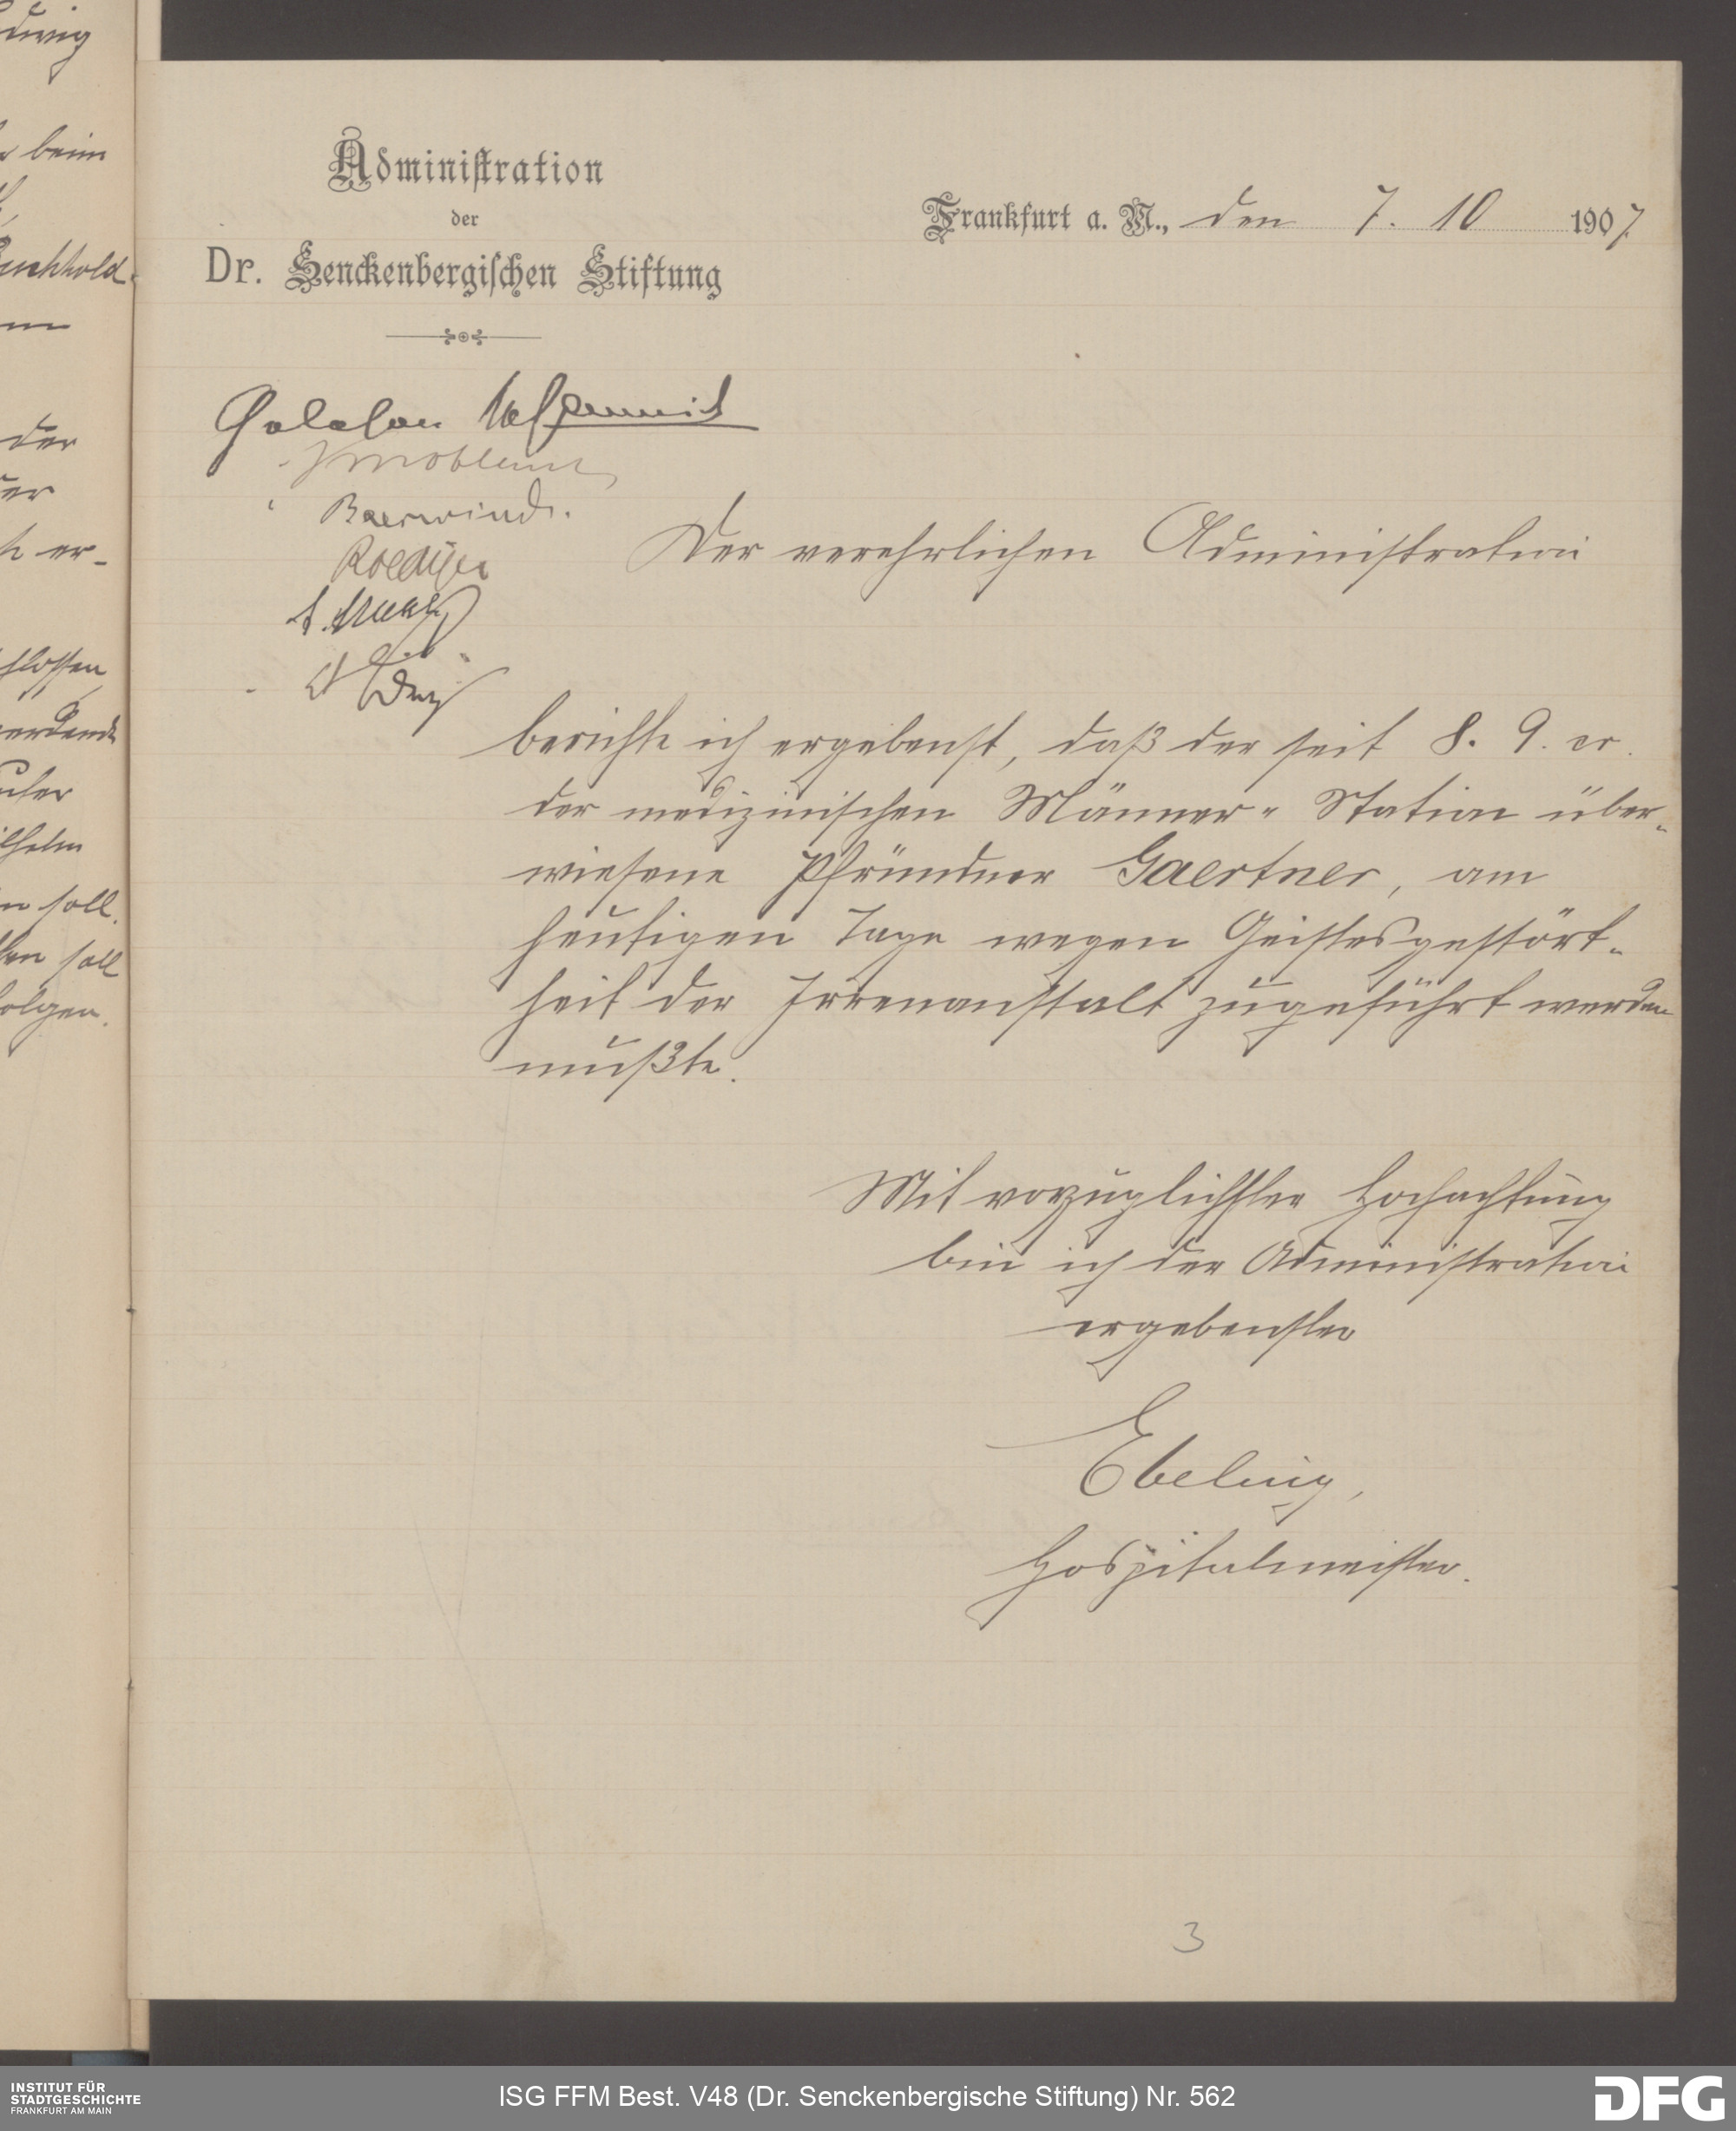 Administration
der
Dr. Senckenbergischen Stiftung
Frankfurt a. M., den 7. 10 1907
Gelesen
Baerwind.
Roediger
Der verehrlichen Administration
berichte ich ergebenst, daß der seit 8. 9. cr.
der medizinischen Männer-Station über-
wiesene Pfründner Gaertner, am
heutigen Tage wegen Geistesgestört-
heit der Irrenanstalt zugeführt werden
mußte.
Mit vorzüglichster Hochachtung
bin ich der Administration
ergebenster
Ebeling,
Hospitalmeister.
3
beim
der
er-
soll.
soll
folgen.
INSTITUT FÜR
STADTGESCHICHTE
FRANKFURT AM MAIN
ISG FFM Best. V48 (Dr. Senckenbergische Stiftung) Nr. 562
DFG